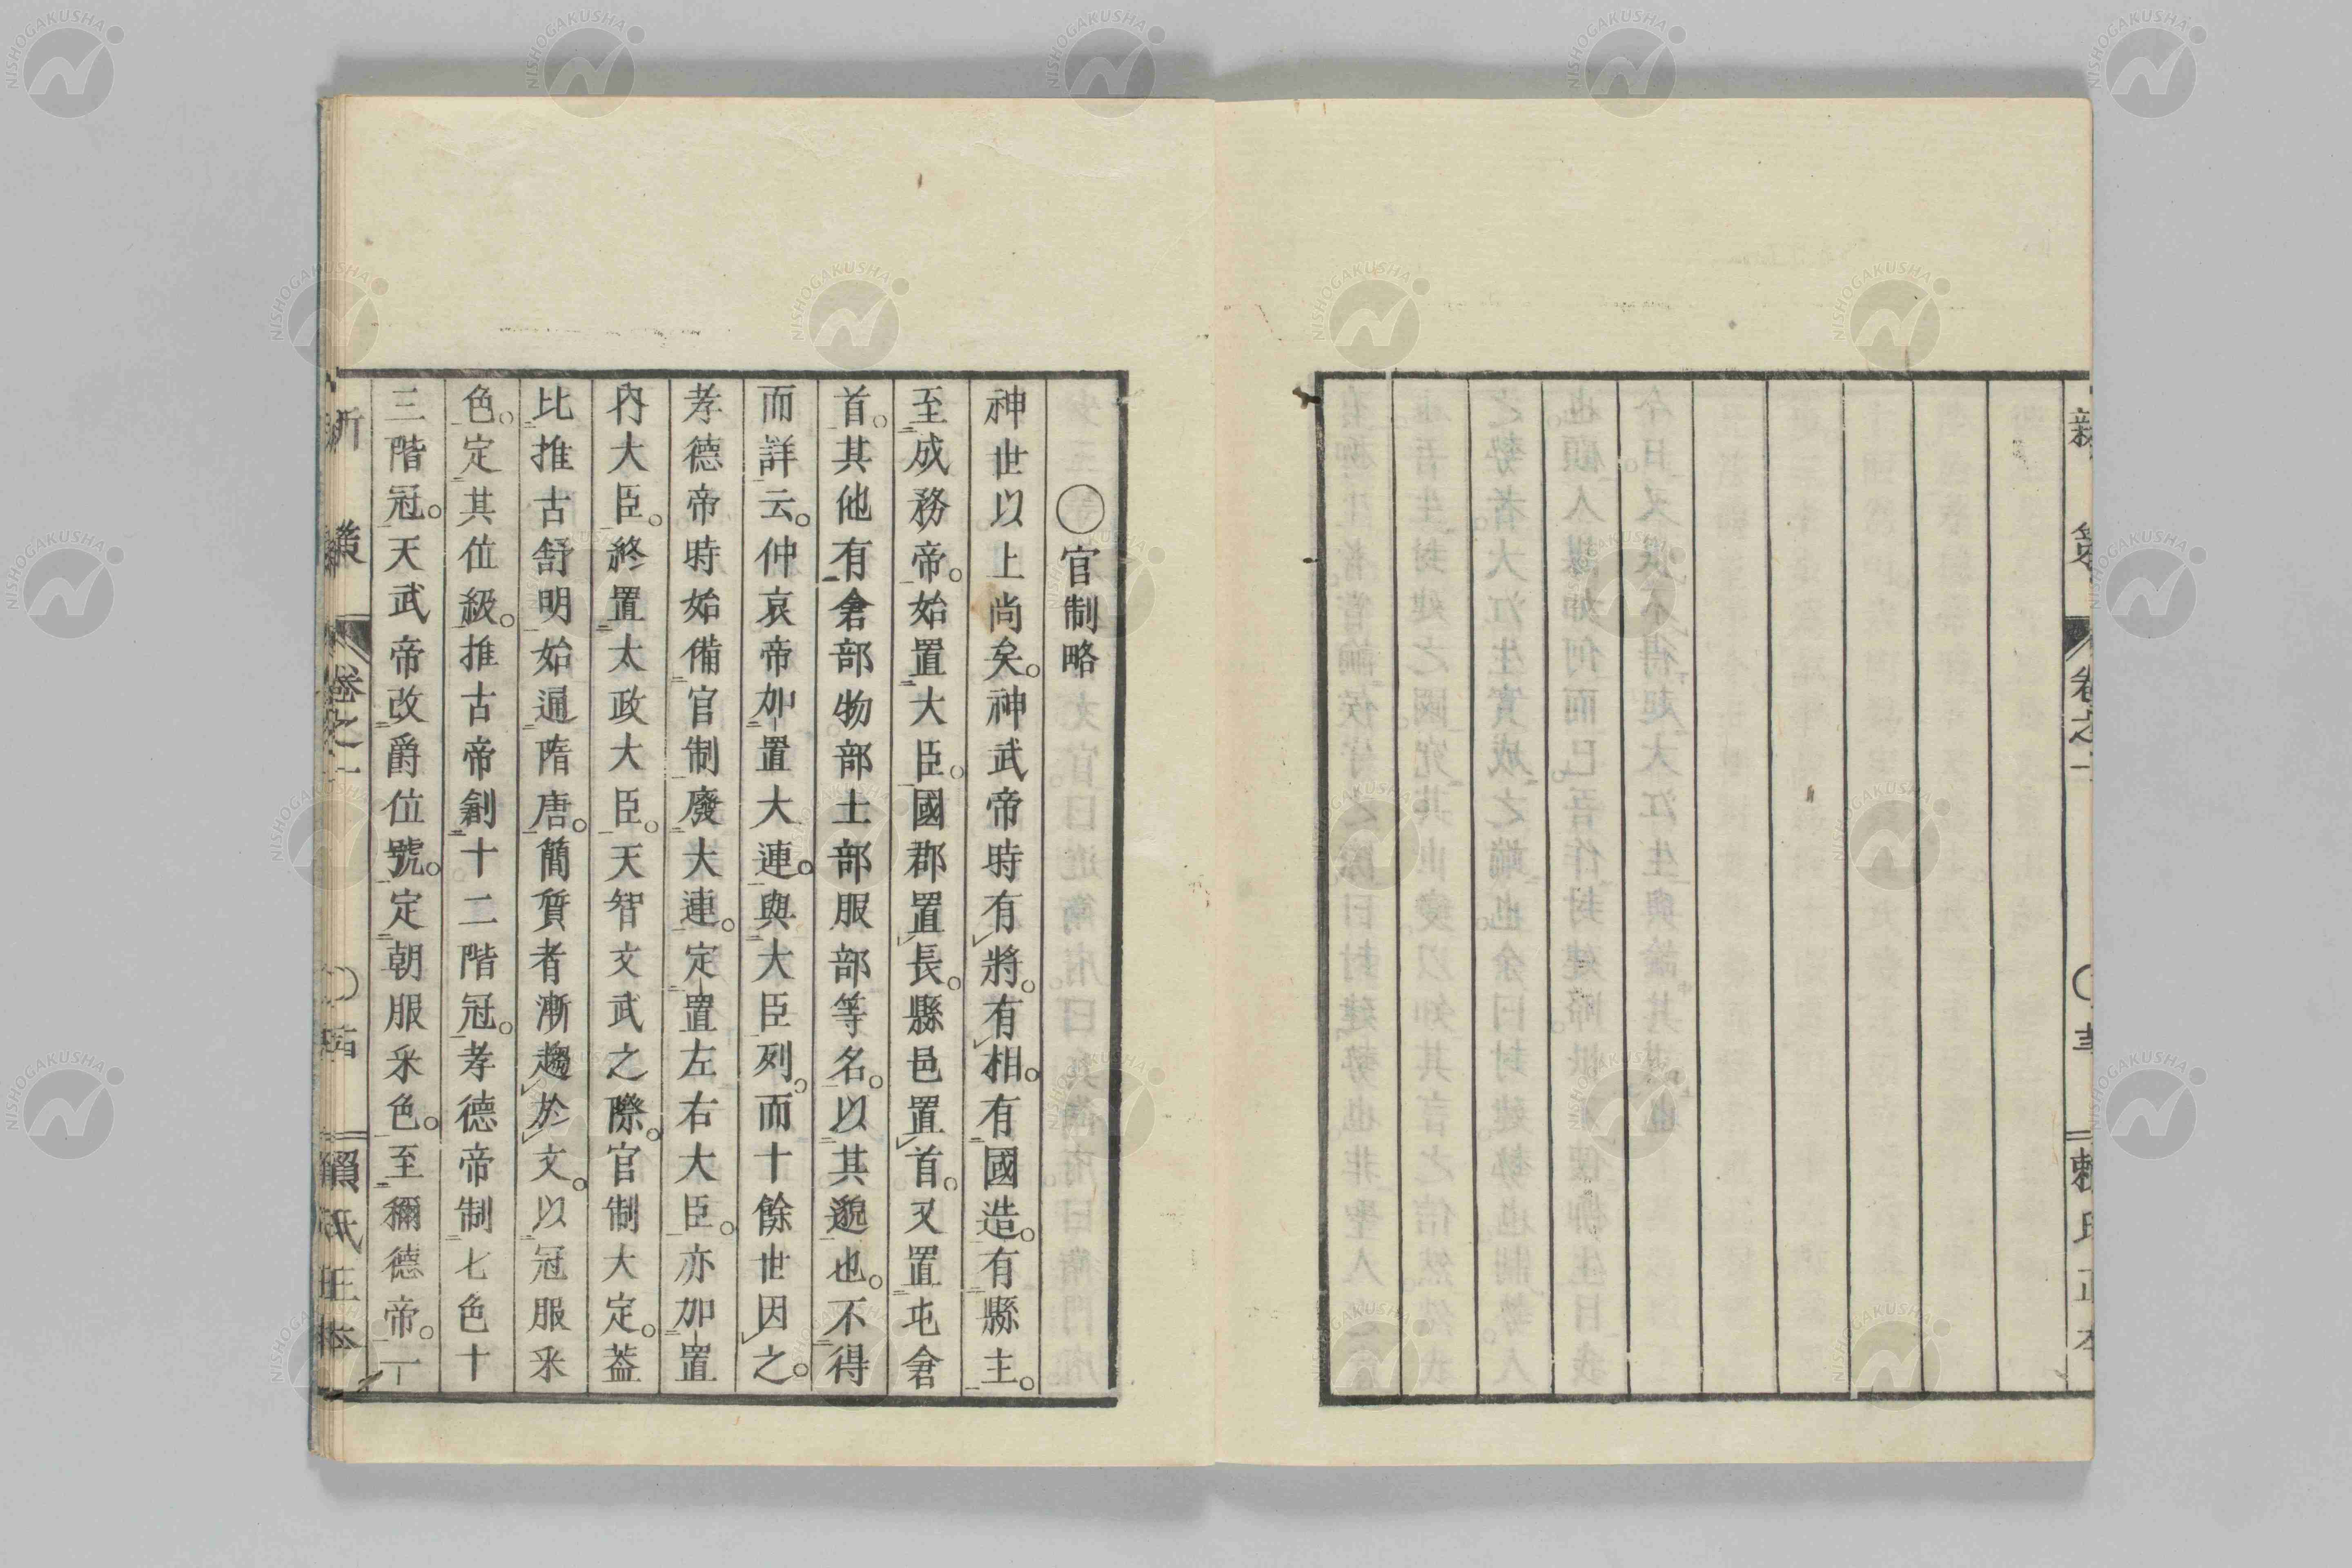 新策
卷之一
賴氏正本
〇官制略
神世以上尚矣。神武帝時有將。有相。有國造。有縣主。
至成務帝。始置大臣。國郡置長。縣邑置首。又置屯倉
首。其他有倉部物部土部服部等名。以其邈也。不得
而詳云。仲哀帝加置大連。與大臣列。而十餘世因之。
孝德帝時始備官制廢大連。定置左右大臣。亦加置
內大臣。終置太政大臣。天智文武之際。官制大定。葢
比推古舒明始通隋唐。簡質者漸趨於文。以冠服采
色。定其位級。推古帝創十二階冠。孝德帝制七色十
三階冠。天武帝改爵位號。定朝服采色。至稱德帝。一
新策
卷之一
賴氏正本
NISHOGAKUSHA